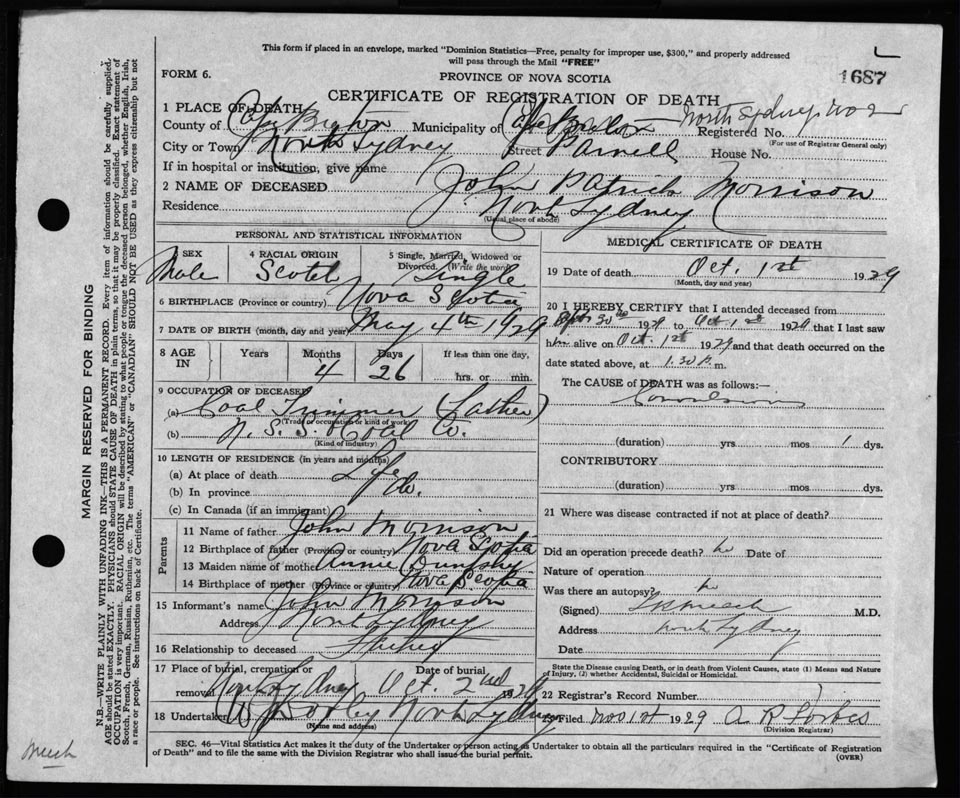 This form if placed in an envelope, marked "Dominion Statistics—Free, penalty for improper use, $300," and properly addressed
will pass through the Mail "FREE"
FORM 6.
PROVINCE OF NOVA SCOTIA
1687
CERTIFICATE OF REGISTRATION OF DEATH
1 PLACE OF DEATH
North Sydney
County of Cape Breton Municipality of Cape Breton Registered No.
(For use of Registrar General only)
City or Town North Sydney Street Parnell House No.
If in hospital or institution, give name
2 NAME OF DECEASED John Patrick Morrison
Residence North Sydney
(Usual place of abode)
PERSONAL AND STATISTICAL INFORMATION
SEX Male
4 RACIAL ORIGIN Scotch
5 Single, Married, Widowed or Divorced. (Write the word) Single
6 BIRTHPLACE (Province or country) Nova Scotia
7 DATE OF BIRTH (month, day and year) May 4th 1929
8 AGE IN Years Months 4 Days 26 If less than one day, hrs. or min.
9 OCCUPATION OF DECEASED
(a) Coal Trimmer (Father)
(Trade or occupation or kind of work)
(b) N. S. S. & Coal Co.
(Kind of industry)
10 LENGTH OF RESIDENCE (in years and months)
(a) At place of death Life
(b) In province do.
(c) In Canada (if an immigrant)
Parents
11 Name of father John Morrison
12 Birthplace of father (Province or country) Nova Scotia
13 Maiden name of mother Annie
14 Birthplace of mother (Province or country) Nova Scotia
15 Informant's name John Morrison
Address North Sydney
16 Relationship to deceased Father
17 Place of burial, cremation or removal North Sydney Date of burial Oct. 2nd 1929
18 Undertaker North Sydney
(Name and address)
MEDICAL CERTIFICATE OF DEATH
19 Date of death Oct. 1st 1929
(Month, day and year)
20 I HEREBY CERTIFY that I attended deceased from
Sept 30th 1929 to Oct 1st 1929 that I last saw
him alive on Oct. 1st 1929 and that death occurred on the
date stated above, at 1.30 m.
The CAUSE of DEATH was as follows:—
Convulsions
(duration) yrs mos 1 dys.
CONTRIBUTORY
(duration) yrs mos dys.
21 Where was disease contracted if not at place of death?
Did an operation precede death? no Date of
Nature of operation
Was there an autopsy? no
(Signed) M.D.
Address North Sydney
Date
State the Disease causing Death, or in death from Violent Causes, state (1) Means and Nature
of Injury, (2) whether Accidental, Suicidal or Homicidal.
22 Registrar's Record Number
Filed Nov 1st 1929 A R Forbes
(Division Registrar)
SEC. 46—Vital Statistics Act makes it the duty of the Undertaker or person acting as Undertaker to obtain all the particulars required in the "Certificate of Registration
of Death" and to file the same with the Division Registrar who shall issue the burial permit.
(OVER)
MARGIN RESERVED FOR BINDING
N.B.—WRITE PLAINLY WITH UNFADING INK—THIS IS A PERMANENT RECORD. Every item of information should be carefully supplied.
AGE should be stated EXACTLY. PHYSICIANS should STATE CAUSE OF DEATH in plain terms, so that it may be properly classified. Exact statement of
OCCUPATION is very important. RACIAL ORIGIN will be described by stating to what people or tongue the deceased person belonged, whether English, Irish,
Scotch, French, German, Russian, Ruthenian, etc. The terms "AMERICAN" or "CANADIAN" SHOULD NOT BE USED as they express citizenship but not
a race or people. See instructions on back of Certificate.